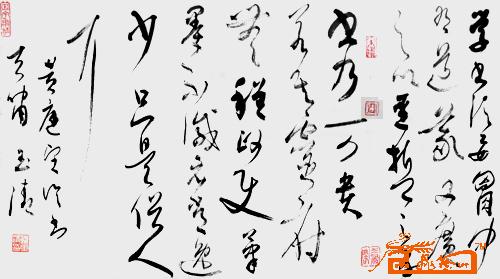 学书须要胸中
有道义又广
之以圣哲之学
书乃可贵
若其灵府
无程政使笔
墨不减元常逸
少只是俗人
耳
黄庭坚论书